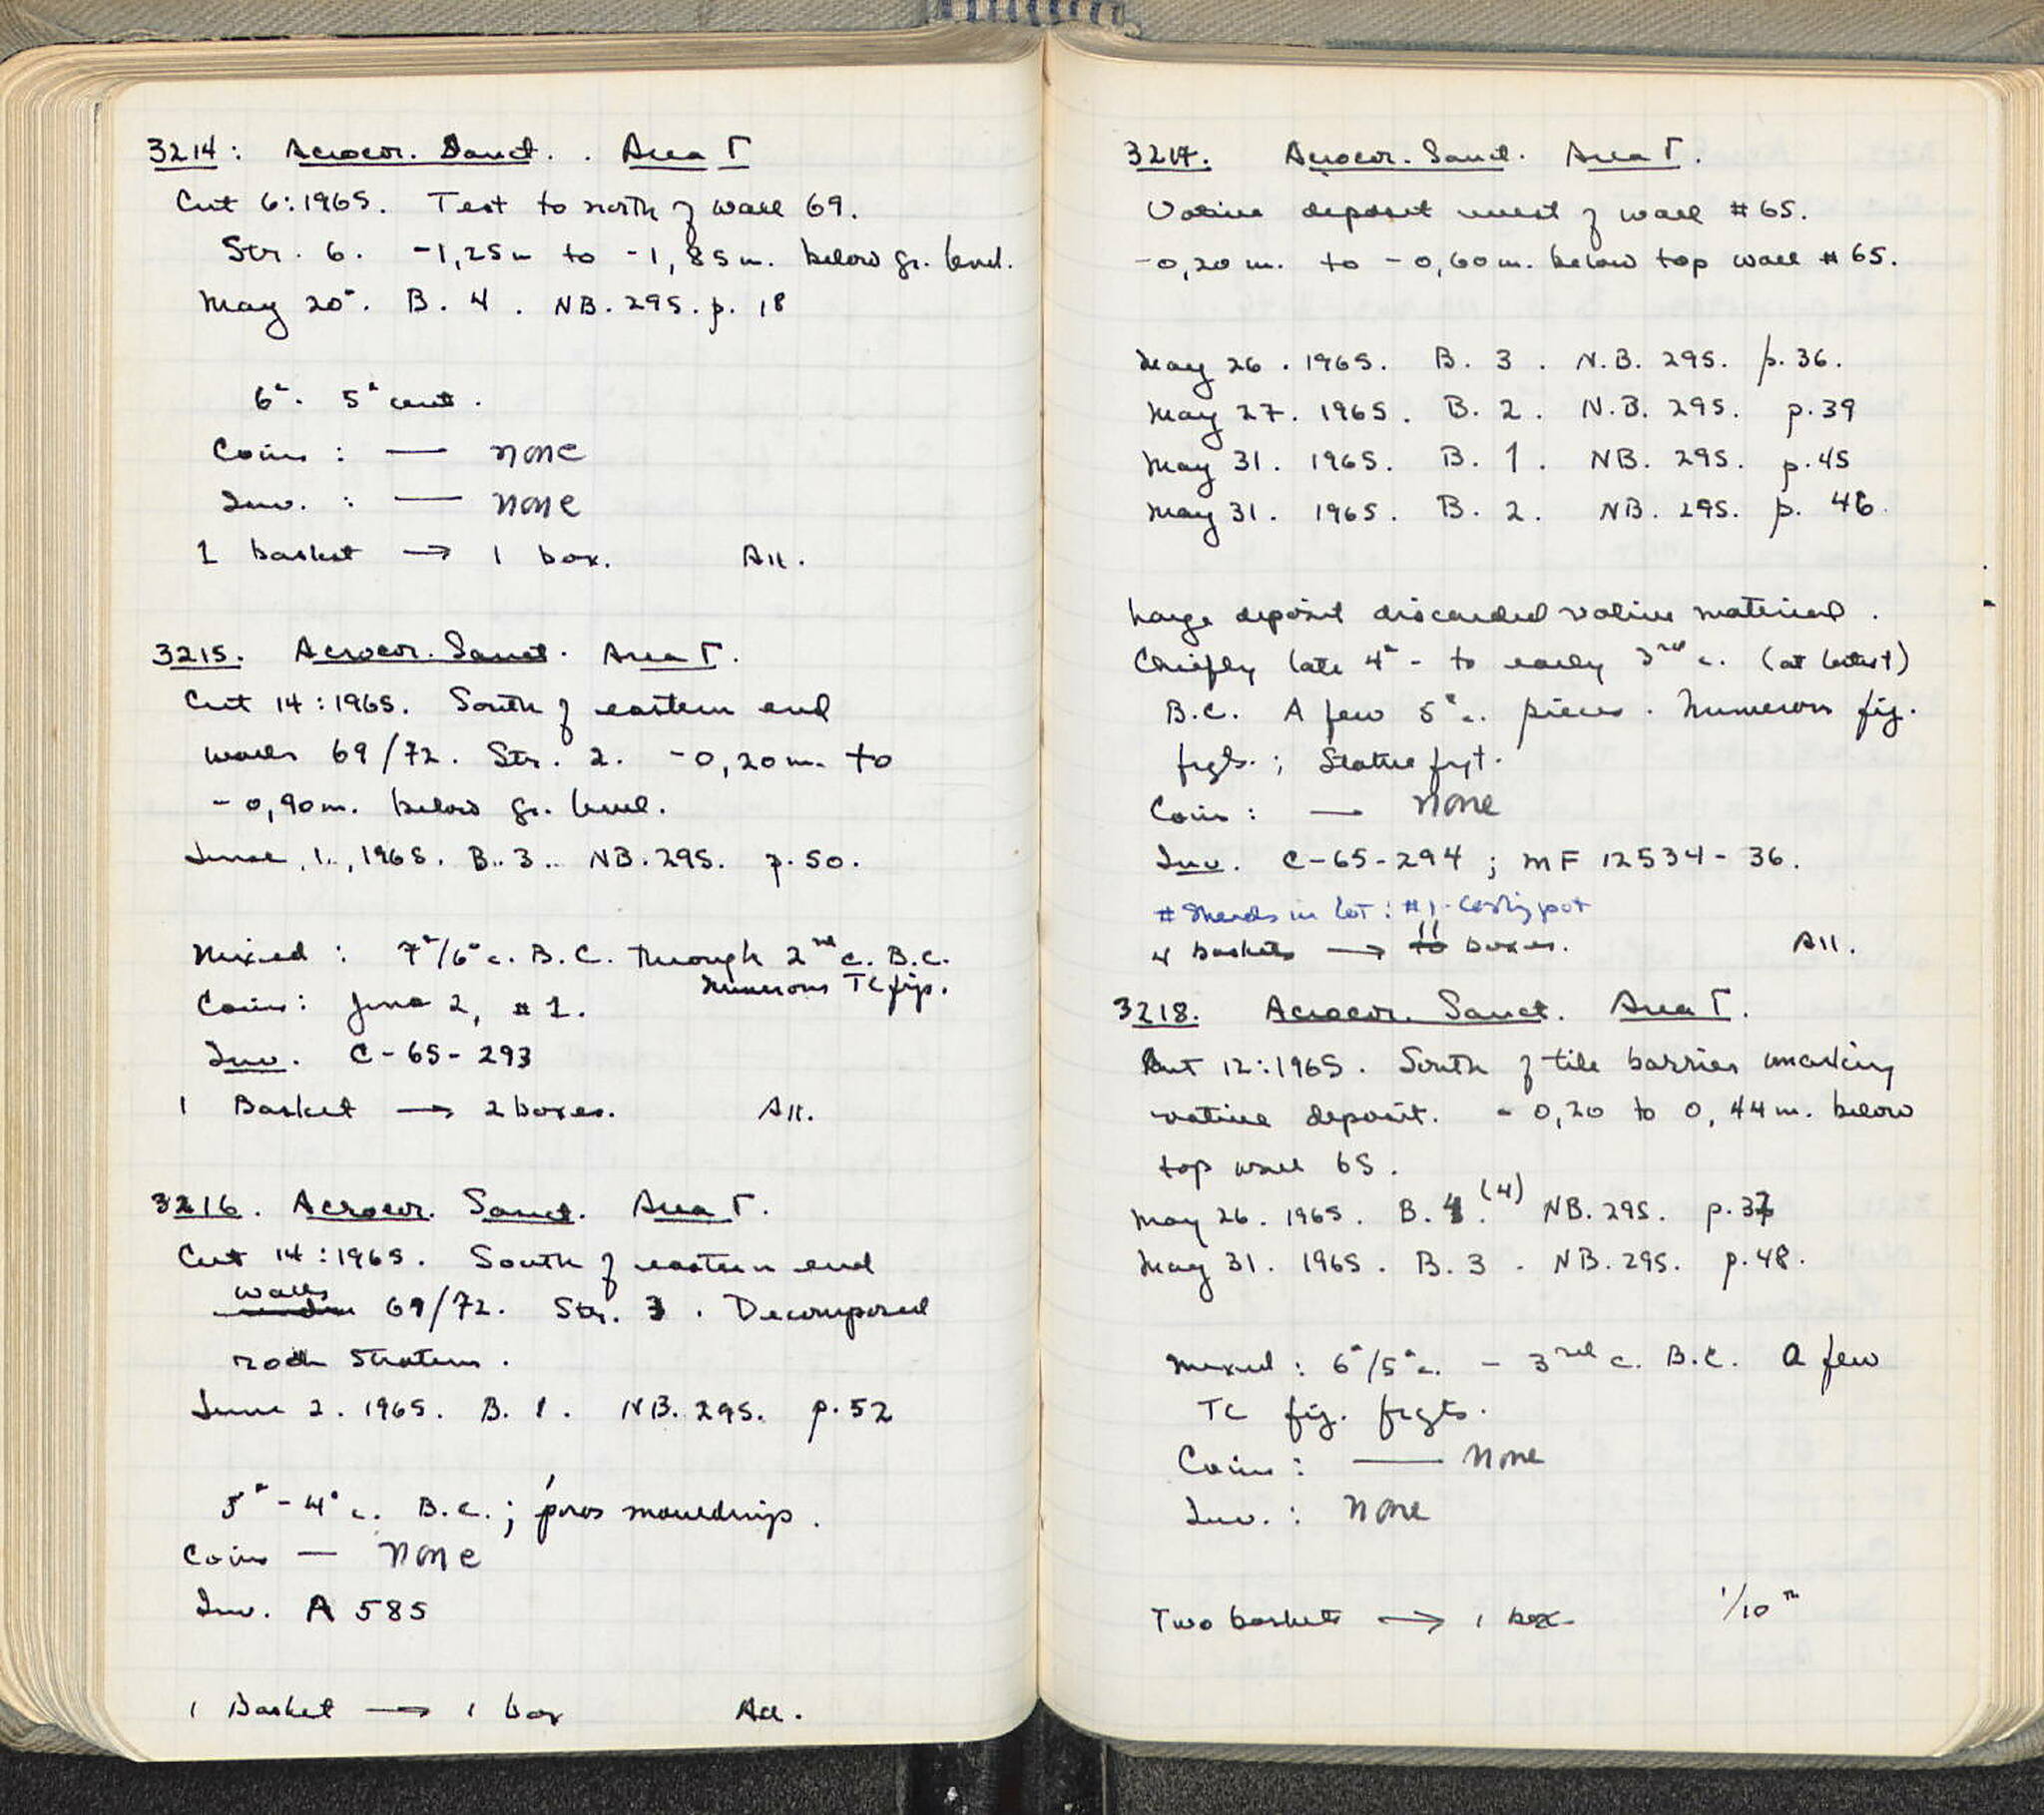 3214: Acrocor. Sanct. . Area Γ
Cut 6:1965. Test to north of wall 69.
Str. 6. -1,25m to -1,85m. below gr. level.
May 20. B. 4. NB. 295. p. 18
6ᵗʰ. 5ᵗʰ cent.
Coins : — none
Inv. : — none
1 basket → 1 box. All.
3215. Acrocor. Sanct. Area Γ.
Cut 14:1965. South of eastern end
walls 69/72. Str. 2. -0,20m. to
-0,90m. below gr. level.
June, 1., 1965. B. 3.. NB. 295. p. 50.
Mixed : 7ᵗʰ/6ᵗʰ c. B.C. through 2ⁿᵈ c. B.C.
Numerous TC figs.
Coins: June 2, #1.
Inv. C-65-293
1 Basket → 2 boxes. All.
3216. Acrocor. Sanct. Area Γ.
Cut 14:1965. South of eastern end
walls 69/72. Str. 3. Decomposed
rock stratum.
June 2. 1965. B. 1. NB. 295. p. 52
5ᵗʰ - 4ᵗʰ c. B.C.; poros mouldings.
Coins — none
Inv. A 585
1 Basket → 1 box All.
3217. Acrocor. Sanct. Area Γ.
Votive deposit west of wall #65.
-0,20 m. to -0,60m. below top wall #65.
May 26. 1965. B. 3. N.B. 295. p. 36.
May 27. 1965. B. 2. N.B. 295. p. 39
May 31. 1965. B. 1. NB. 295. p. 45
May 31. 1965. B. 2. NB. 295. p. 46.
Large deposit discarded votive material.
Chiefly late 4ᵗʰ - to early 3ʳᵈ c. (at latest)
B.C. A few 5ᵗʰ c. pieces. Numerous fig.
frgts.; Statue frgt.
Coins: — none
Inv. C-65-294; MF 12534-36.
# Sherds in lot: #1- cooking pot
4 baskets → 11 boxes. All.
3218. Acrocor. Sanct. Area Γ.
Cut 12:1965. South of tile barrier marking
votive deposit. -0,20 to 0,44m. below
top wall 65.
May 26. 1965. B. 4. (4) NB. 295. p. 37
May 31. 1965. B. 3. NB. 295. p. 48.
Mixed: 6ᵗʰ/5ᵗʰ c. - 3ʳᵈ c. B.C. A few
TC fig. frgts.
Coins: — none
Inv.: none
Two baskets → 1 box 1/10 ᵗʰ